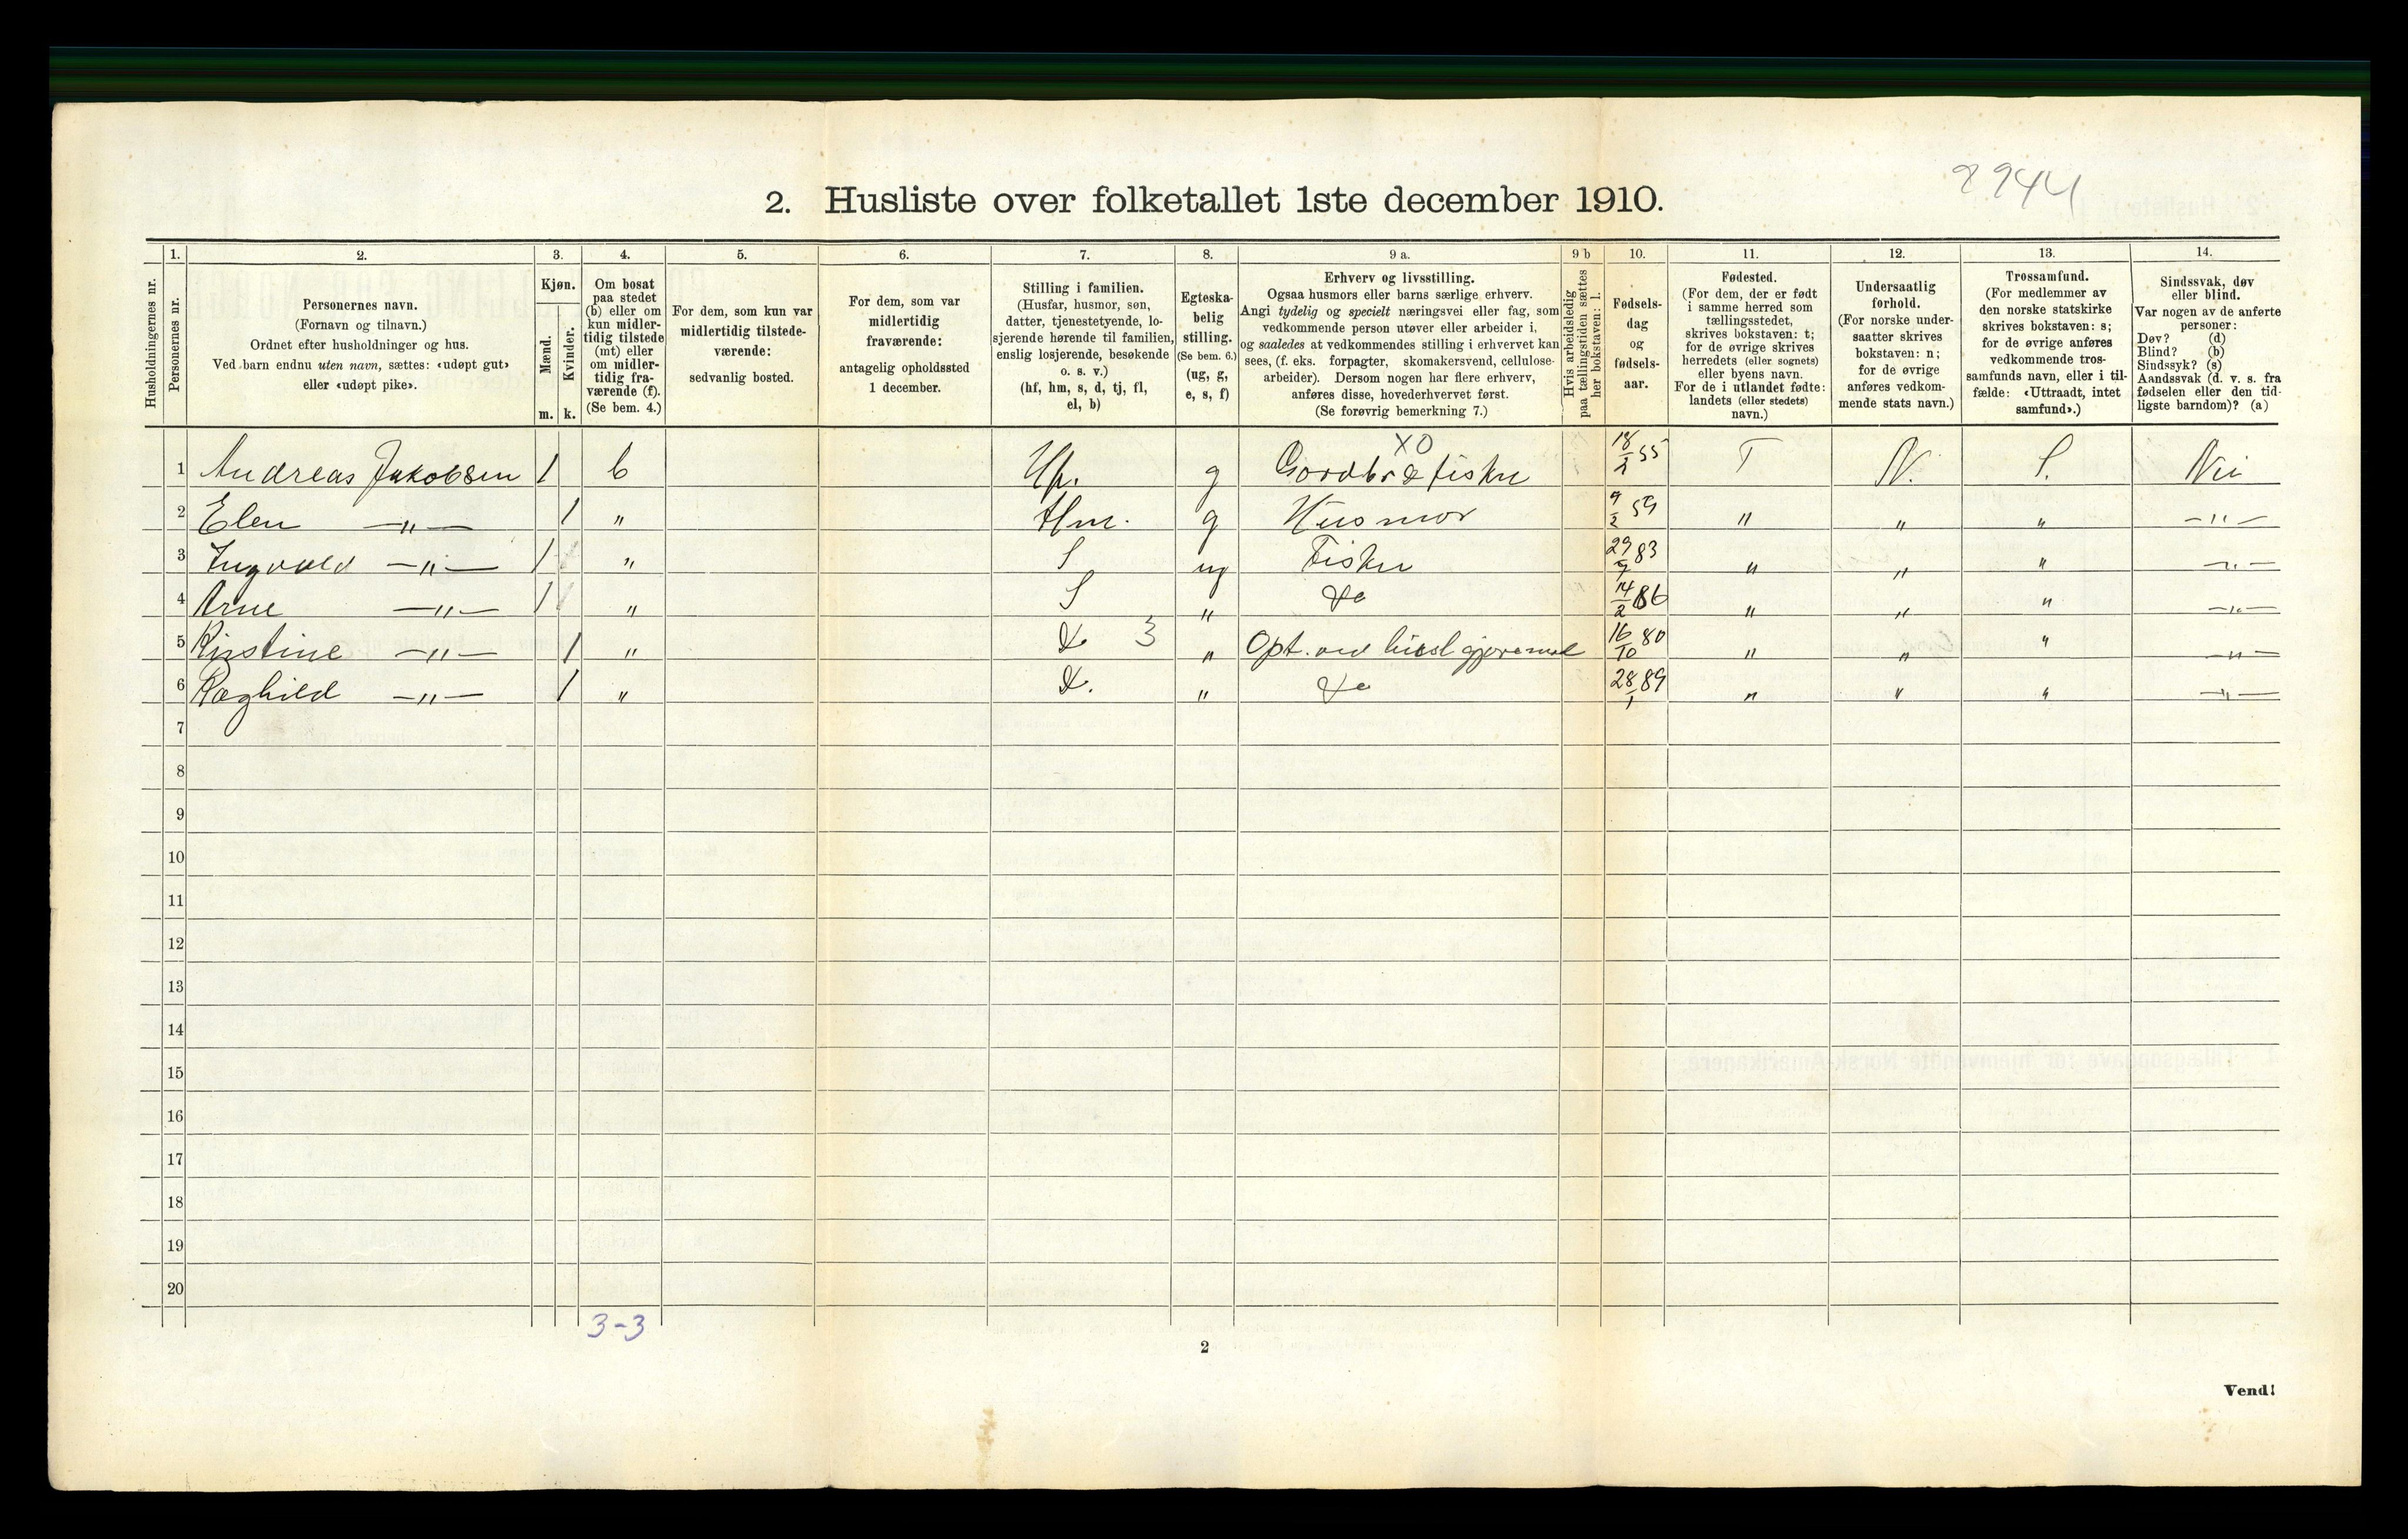 2. Husliste over folketallet 1ste december 1910.
Husholdningernes nr.
1. Personernes nr.
2. Personernes navn.
(Fornavn og tilnavn.)
Ordnet efter husholdninger og hus.
Ved barn endnu uten navn, sættes: «udøpt gut»
eller «udøpt pike».
3. Kjøn.
Mænd. m.
Kvinder. k.
4. Om bosat
paa stedet
(b) eller om
kun midler-
tidig tilstede
(mt) eller
om midler-
tidig fra-
værende (f).
(Se bem. 4.)
5. For dem, som kun var
midlertidig tilstede-
værende:
sedvanlig bosted.
6. For dem, som var
midlertidig
fraværende:
antagelig opholdssted
1 december.
7. Stilling i familien.
(Husfar, husmor, søn,
datter, tjenestetyende, lo-
sjerende hørende til familien,
enslig losjerende, besøkende
o. s. v.)
(hf, hm, s, d, tj, fl,
el, b)
8. Egteska-
belig
stilling.
(Se bem. 6.)
(ug, g,
e, s, f)
9 a. Erhverv og livsstilling.
Ogsaa husmors eller barns særlige erhverv.
Angi tydelig og specielt næringsvei eller fag, som
vedkommende person utøver eller arbeider i,
og saaledes at vedkommendes stilling i erhvervet kan
sees, (f. eks. forpagter, skomakersvend, cellulose-
arbeider). Dersom nogen har flere erhverv,
anføres disse, hovederhvervet først.
(Se forøvrig bemerkning 7.)
9 b Hvis arbeidsledig
paa tællingstiden sættes
her bokstaven: l.
10. Fødsels-
dag
og
fødsels-
aar.
11. Fødested.
(For dem, der er født
i samme herred som
tællingsstedet,
skrives bokstaven: t;
for de øvrige skrives
herredets (eller sognets)
eller byens navn.
For de i utlandet fødte:
landets (eller stedets)
navn.)
12. Undersaatlig
forhold.
(For norske under-
saatter skrives
bokstaven: n;
for de øvrige
anføres vedkom-
mende stats navn.)
13. Trossamfund.
(For medlemmer av
den norske statskirke
skrives bokstaven: s;
for de øvrige anføres
vedkommende tros-
samfunds navn, eller i til-
fælde: «Uttraadt, intet
samfund».)
14. Sindssvak, døv
eller blind.
Var nogen av de anførte
personer:
Døv? (d)
Blind? (b)
Sindssyk? (s)
Aandssvak (d. v. s. fra
fødselen eller den tid-
ligste barndom)? (a)
XO
1 Andreas Jakobsen 1 b Hf. g Gordbr & fisker 18/2 55 T N. S. Nei
2 Elen —"— 1 " Hm. g Husmor 9/2 59 " " " —"—
3 Ingvald —"— 1 " S ug Fisker 29/9 83 " " " —"—
4 Arne —"— 1 " S " Do 14/2 86 " " " —"—
5 Kirstine —"— 1 " D 3 " Opt. ved husl gjøremaal 16/10 80 " " " —"—
6 Raghild —"— 1 " D. " Do 28/1 89 " " " —"—
7
8
9
10
11
12
13
14
15
16
17
18
19
20
3-3
2
Vend!